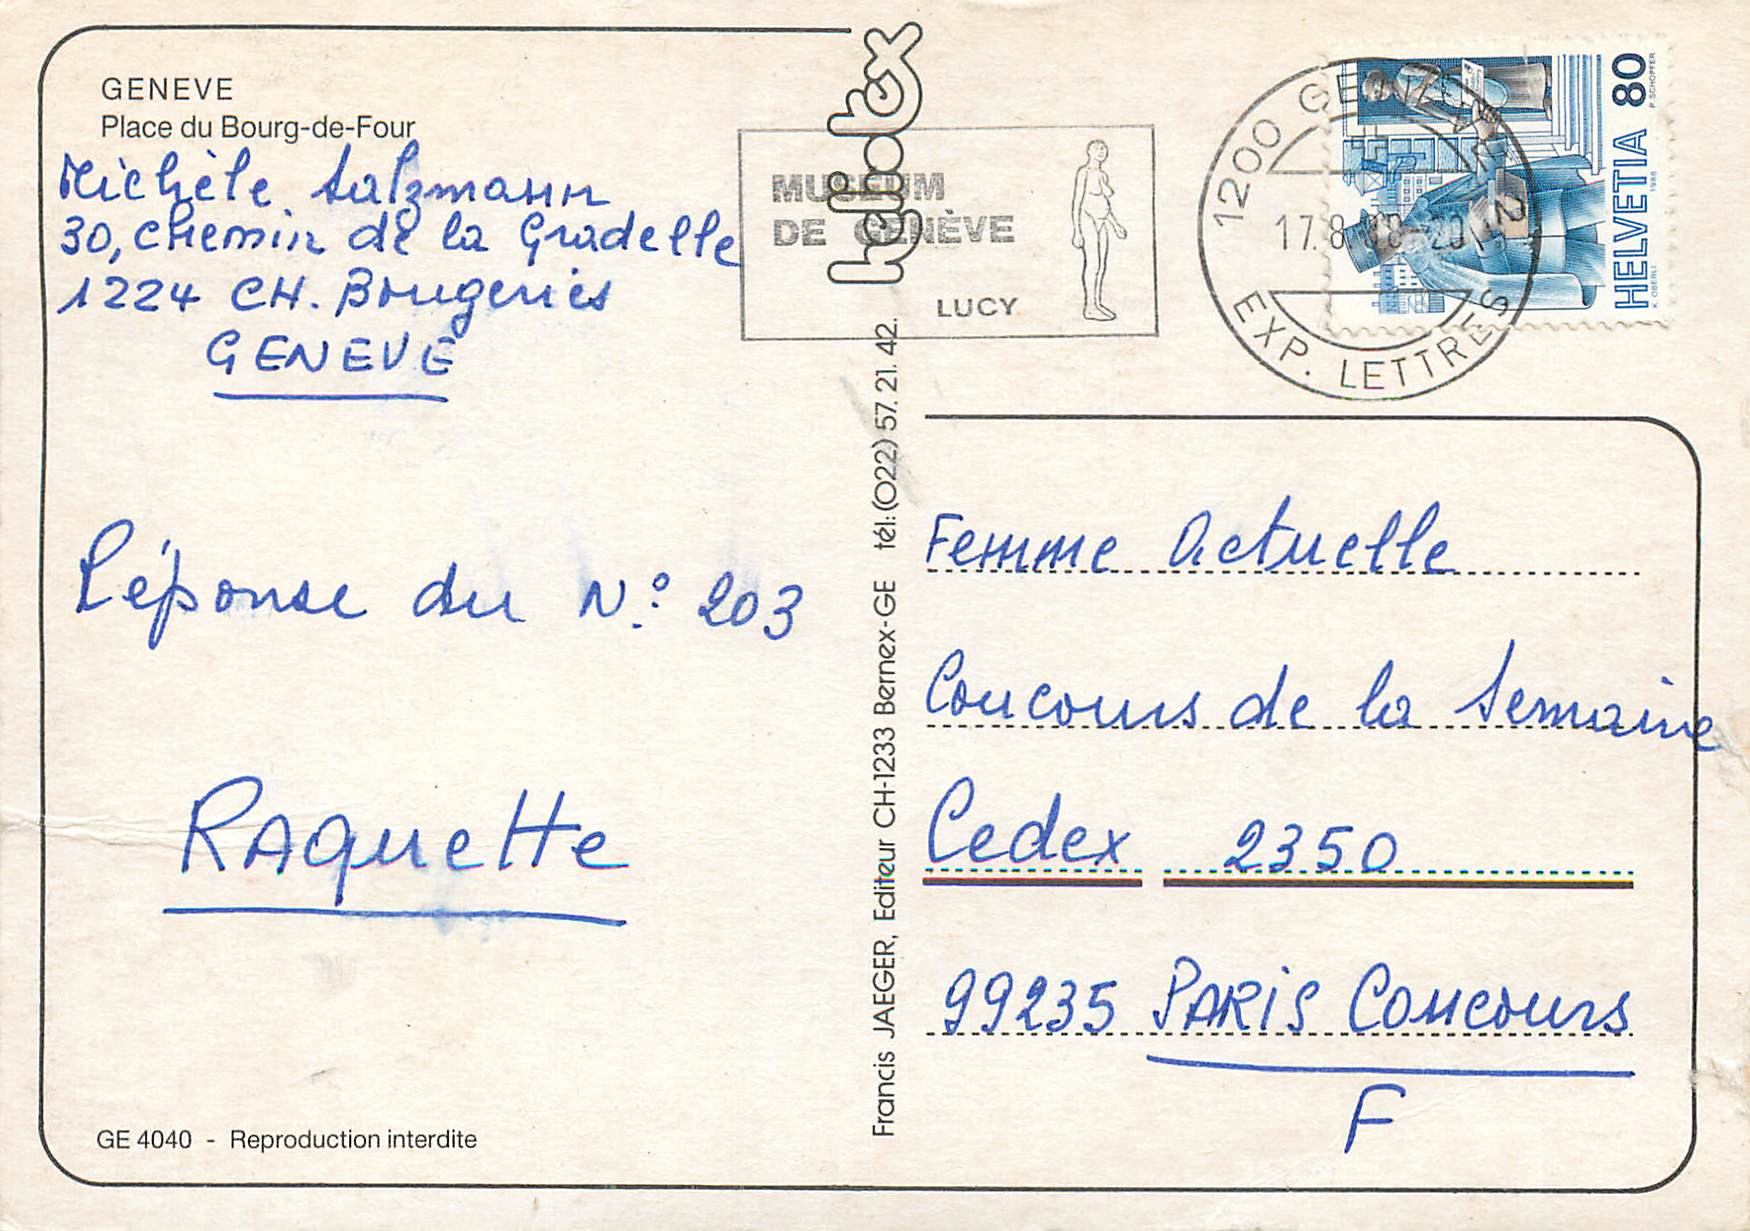 GENEVE
Place du Bourg-de-Four
Michèle Salzmann
30, chemin de la Gradelle
1224 CH. Bougeries
GENEVE
Réponse du N° 203
RAquette
GE 4040 - Reproduction interdite
heliotex
Francis JAEGER, Editeur CH-1233 Bernex-GE tél: (022) 57. 21. 42.
MUSEUM
DE GENÈVE
LUCY
1200 GENÈVE 2
17.8.88-20
EXP. LETTRES
HELVETIA 80
K. OBERLI 1986 P. SCHOPFER
Femme Actuelle
Concours de la Semaine
Cedex 2350
99235 PARIS Concours
F